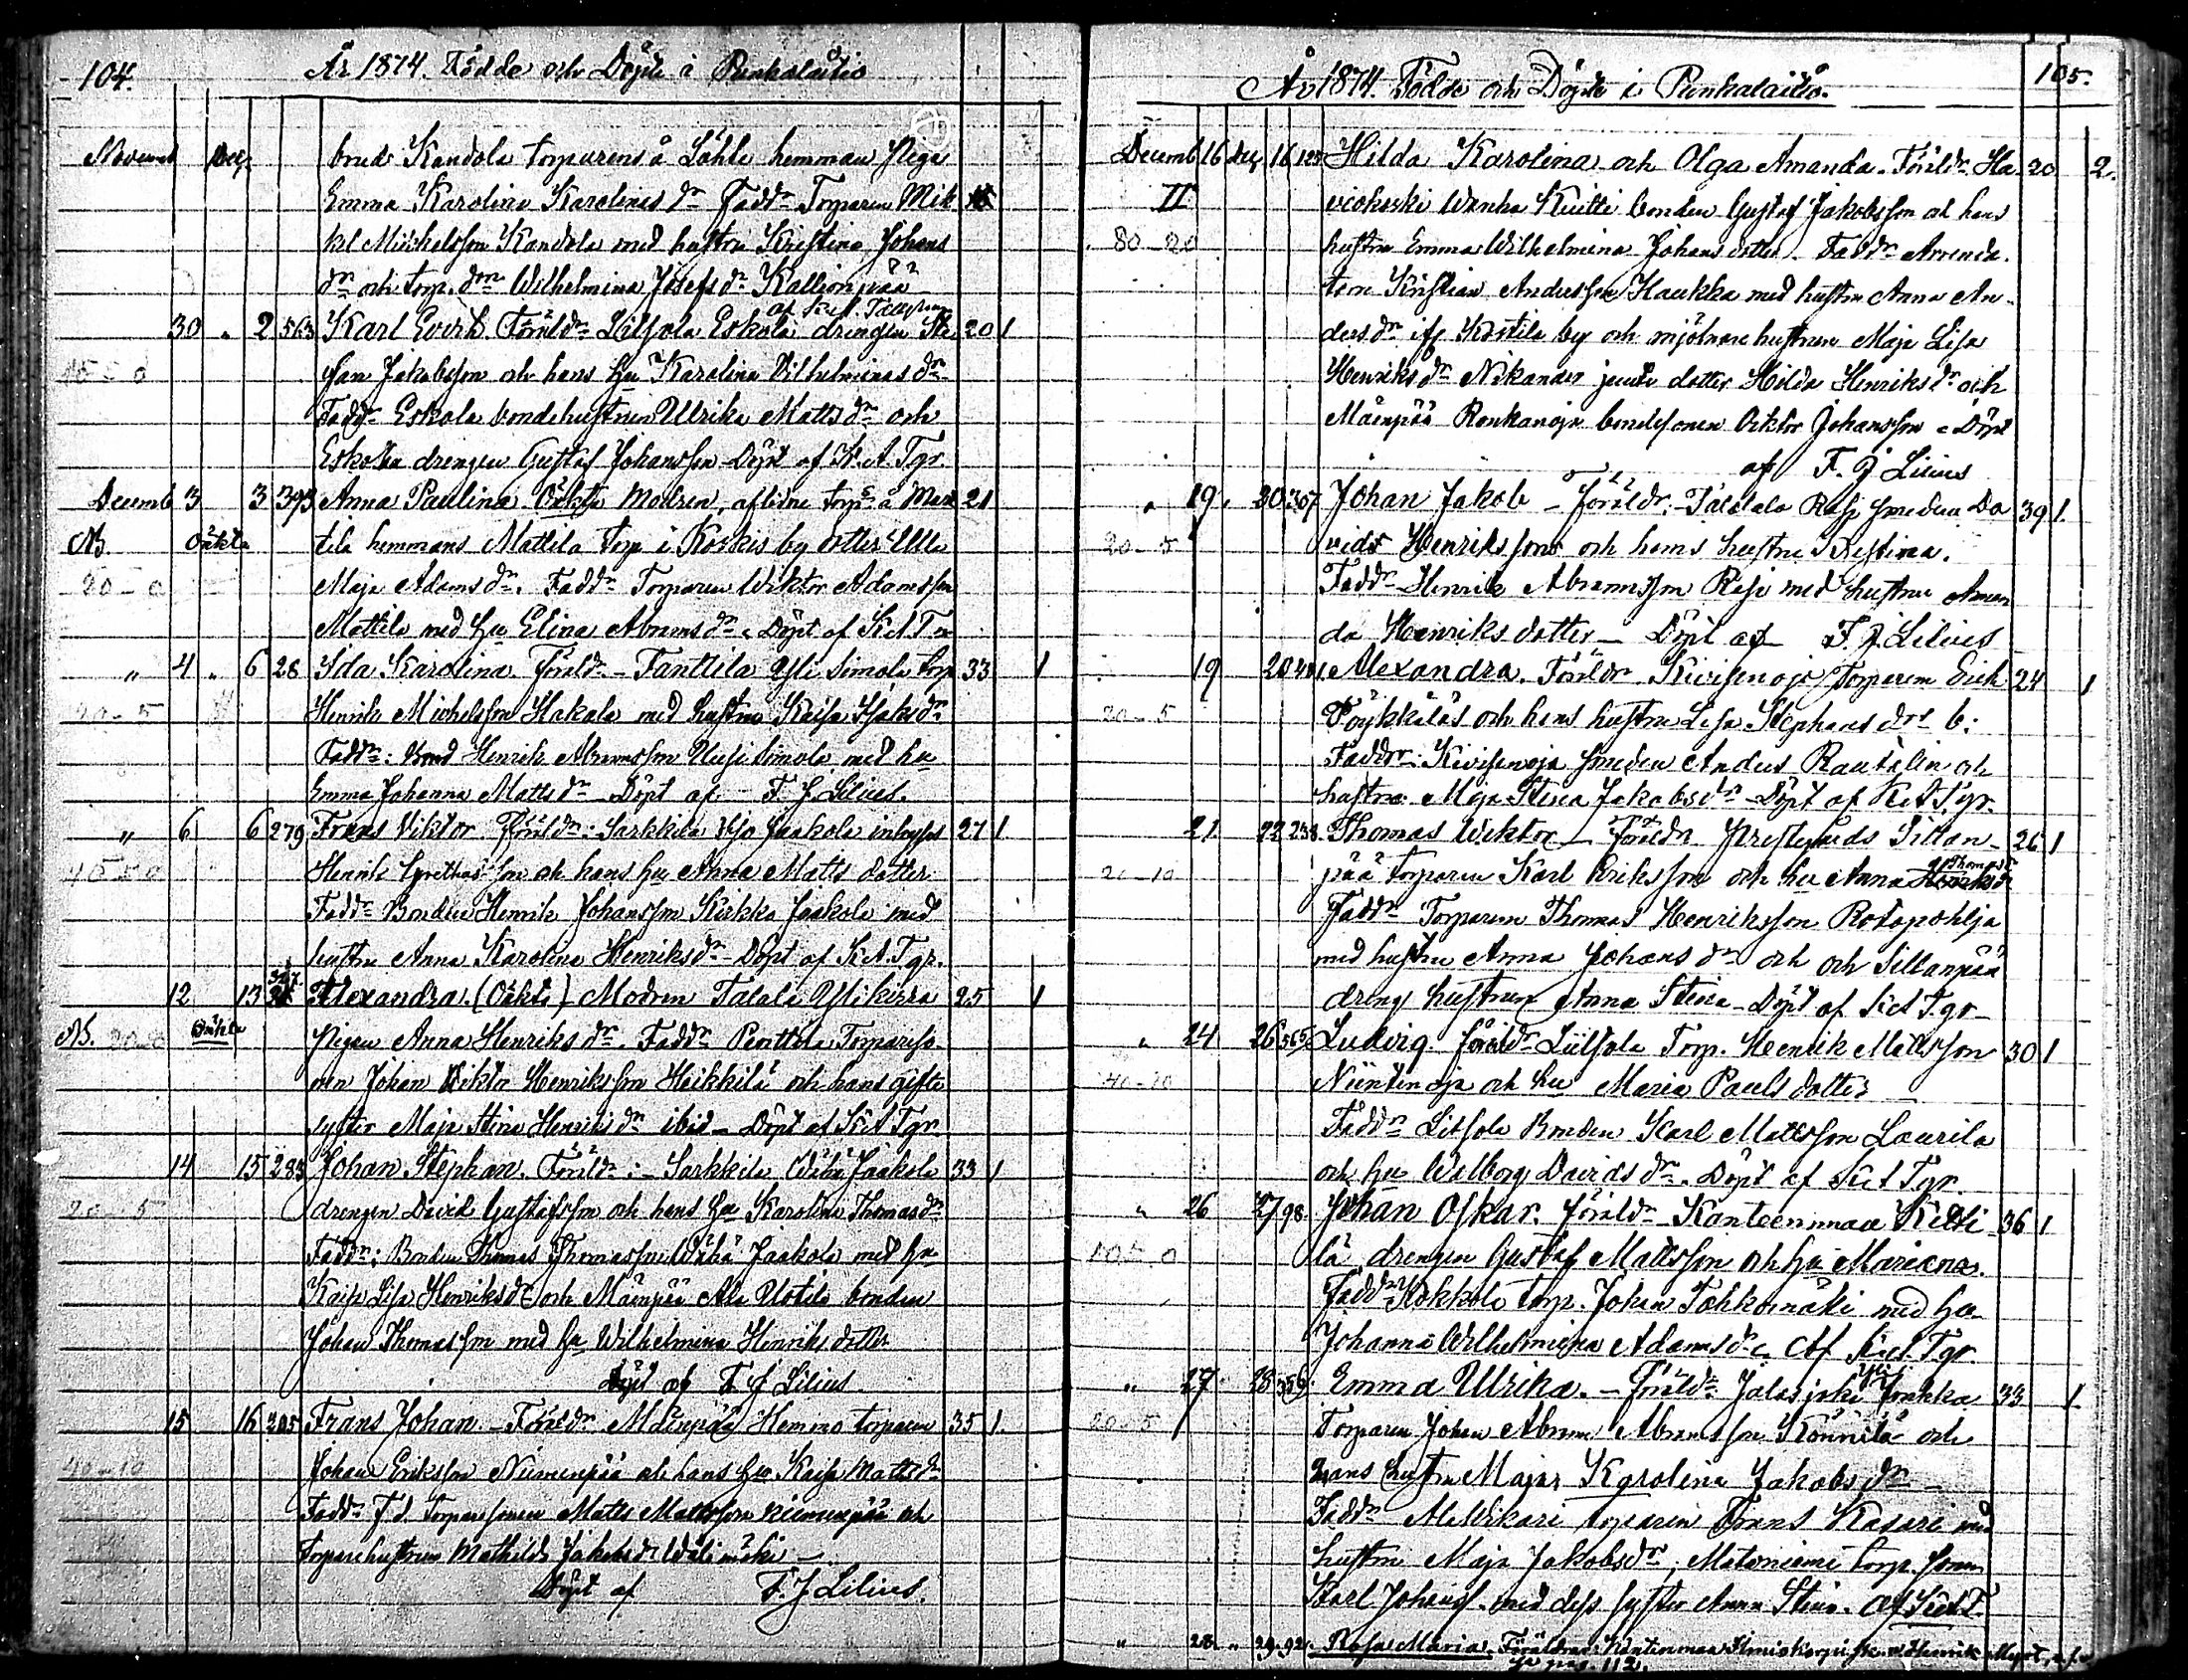 104.
År 1874. Födde och Döpte i Punkalaitio
Novemb Dec. bruds Kandola torparens å Löhle hemman Piga
Emma Karolina Karolinas dr Faddr Torparen Mik
kel Mickelsson Kandola med hustru Kristina Johans
dr och torp. drn Wilhelmina Josefs dr Kallionpää
af Kiet. Tallgren
30 " 2 563 Karl Evert. Föräldr Leitsola Eskola drengen Ste 20 1
15-0 fan Jakobsson och hans hu Karolina Vilhelminas dr
Faddr Eskola bondehustrun Ullrika Matts dr och
Eskola drengen Gustaf Johansson Döpt af K.A.Tgr.
Decemb 3 3 393 Anna Paulina Oäkta Modren, aflidne torp s å Mar 21
NB Oäkta tila hemmans Mattila torp i Koskis by dotter Ulla
20-0 Maja Adams dr. Faddr Torparen Wiktor Adamsson
Mattila med hu Elina Abrams dr Döpt af K.A.T
" 4 " 6 28 Ida Karolina. Föräldr - Tanttila Yli Simola torp 33 1
20-5 Henrik Michelsson Hakala med hustru Kaisa Isaks dr
Faddr: Bond Henrik Abramsson Uusi Simola med hu
Emma Johanna Matts dr Döpt af F. J. Lilius.
" 6 6 279 Frans Viktor Föräldr: Sarkkila Yso Jaakola inhyses 27 1
Henrik Grethasson och hans hu Anna Matts dotter
Faddr Bonden Henrik Johansson Kirkka Jaakola med
hustru Anna Karolina Henriks dr - Döpt af K.A.Tgr.
12 13 Alexandra. (Oäkta) Modren Talala Ylikirra 25 1
NB. 20-0 Oäkta Pigan Anna Henriks dr. Faddr Penttila Torpareso
nen Johan Viktor Henriksson Heikkilä och hans gifta
syster Maja Stina Henriks dr ibid - Döpt af K.A.Tgr.
14 15 283 Johan Stephan. Föräldr: - Sarkkila Wähä Jaakola 33 1
20-5 drengen David Gustafsson och hans hu Karolina Thomas dr
Faddr: Bonden Thomas Thomasson Wähä Jaakola med hu
Kaisa Lisa Henriks dr och Mäenpää Ala Uotila bonden
Johan Thomasson med hu Wilhelmina Henriks dotter
Döpt af F. J. Lilius
15 16 205 Frans Johan. - Föräldr Mäenpää Hemmo torparen 35 1.
40-10 Johan Eriksson Niemenpää och hans hu Kaisa Matts dr
Faddr F.d. torparesonen Matts Mattsson Niemenpää och
torparehustrun Mathilda Jakobs dr Wälimäki -
Döpt af F. J. Lilius.
105.
År 1874. Födde och Döpte i Punkalaitio.
Decemb 16 Dec 16 Hilda Karolina och Olga Amanda. Föräldr. Ha 20 2.
II viokoski Wanha Kuitti bonden Gustaf Jakobsson och hans
80-20 hustru Emma Wilhelmina Johans dotter. Faddr Arrenda
torn Kristian Andersson Haukka med hustru Anna An-
ders dr if. Kostila by och mjölnare hustrun Maja Lisa
Henriks dr Nikander jemte dotter Hilda Henriks dr och
Mäenpää Ronkanoja bondesonen Viktor Johansson - Döpt
af F. J. Lilius
" 19. 20 307 Johan Jakob - Föräldr: - Talala Rasi smeden Da 39 1.
20-5 vids Henriksson och hans hustru Kristina.
Faddr Henrik Abramsson Rasi med hustru Aman
da Henriks dotter - Döpt af F. J. Lilius
19 20 Alexandra. Föräldr Kivisenoja Torparen Erik 24 1
20-5 Pöykkäläs och hans hustru Lisa Stephans drs b.
Faddr: Kivisenoja smeden Anders Rautalin och
hustru Maja Stina Jakobs dr - Döpt af K.A.Tgr.
21 22 238 Thomas Wiktor - Föräldr Prestlunds Sillan- 26 1
20-10 pää torparen Karl Eriksson och hu Anna Thomas dr
Faddr Torparen Thomas Henriksson Rotapohlja
med hustru Anna Johans dr och och Sillanpää
dreng hustrun Anna Stina - Döpt af K.A.Tgr -
" 24 26 565 Ludvig Föräldr Liitsola Torp. Henrik Mattsson 30 1
40-10 Niintinoja och hu Maria Pauls dotter
Faddr Litsola Bonden Karl Mattsson Laurila
och hu Walborg Davids dr. Döpt af K.A.Tgr.
" 26 27 98. Johan Oskar. Föräldr - Kanteenmaa Kitti 36 1
lä drengen Gustaf Mattsson och hu Mariana.
Faddr Kokkola torp. Johan Tahkomäki med hu
Johanna Wilhelmina Adams dr. Af K.A.Tgr.
" 27 28 359 Emma Ulrika. - Föräldr Jalasjoki Yli Jonkka 33 1.
20-5 Torparen Johan Abram Abramsson Könnilä och
hans hustru Maja Karolina Jakobs dr
Faddr Ala Wikari torparen Frans Kasari med
hustru Maja Jakobs dr, Mataniemi torp. sonen
Karl Johanss. med dess syster Anna Stina. Af K.A.T.
" 28 " 29 92. Rosa Maria. Föräldrar: Kantenmaa
se pag. 112.